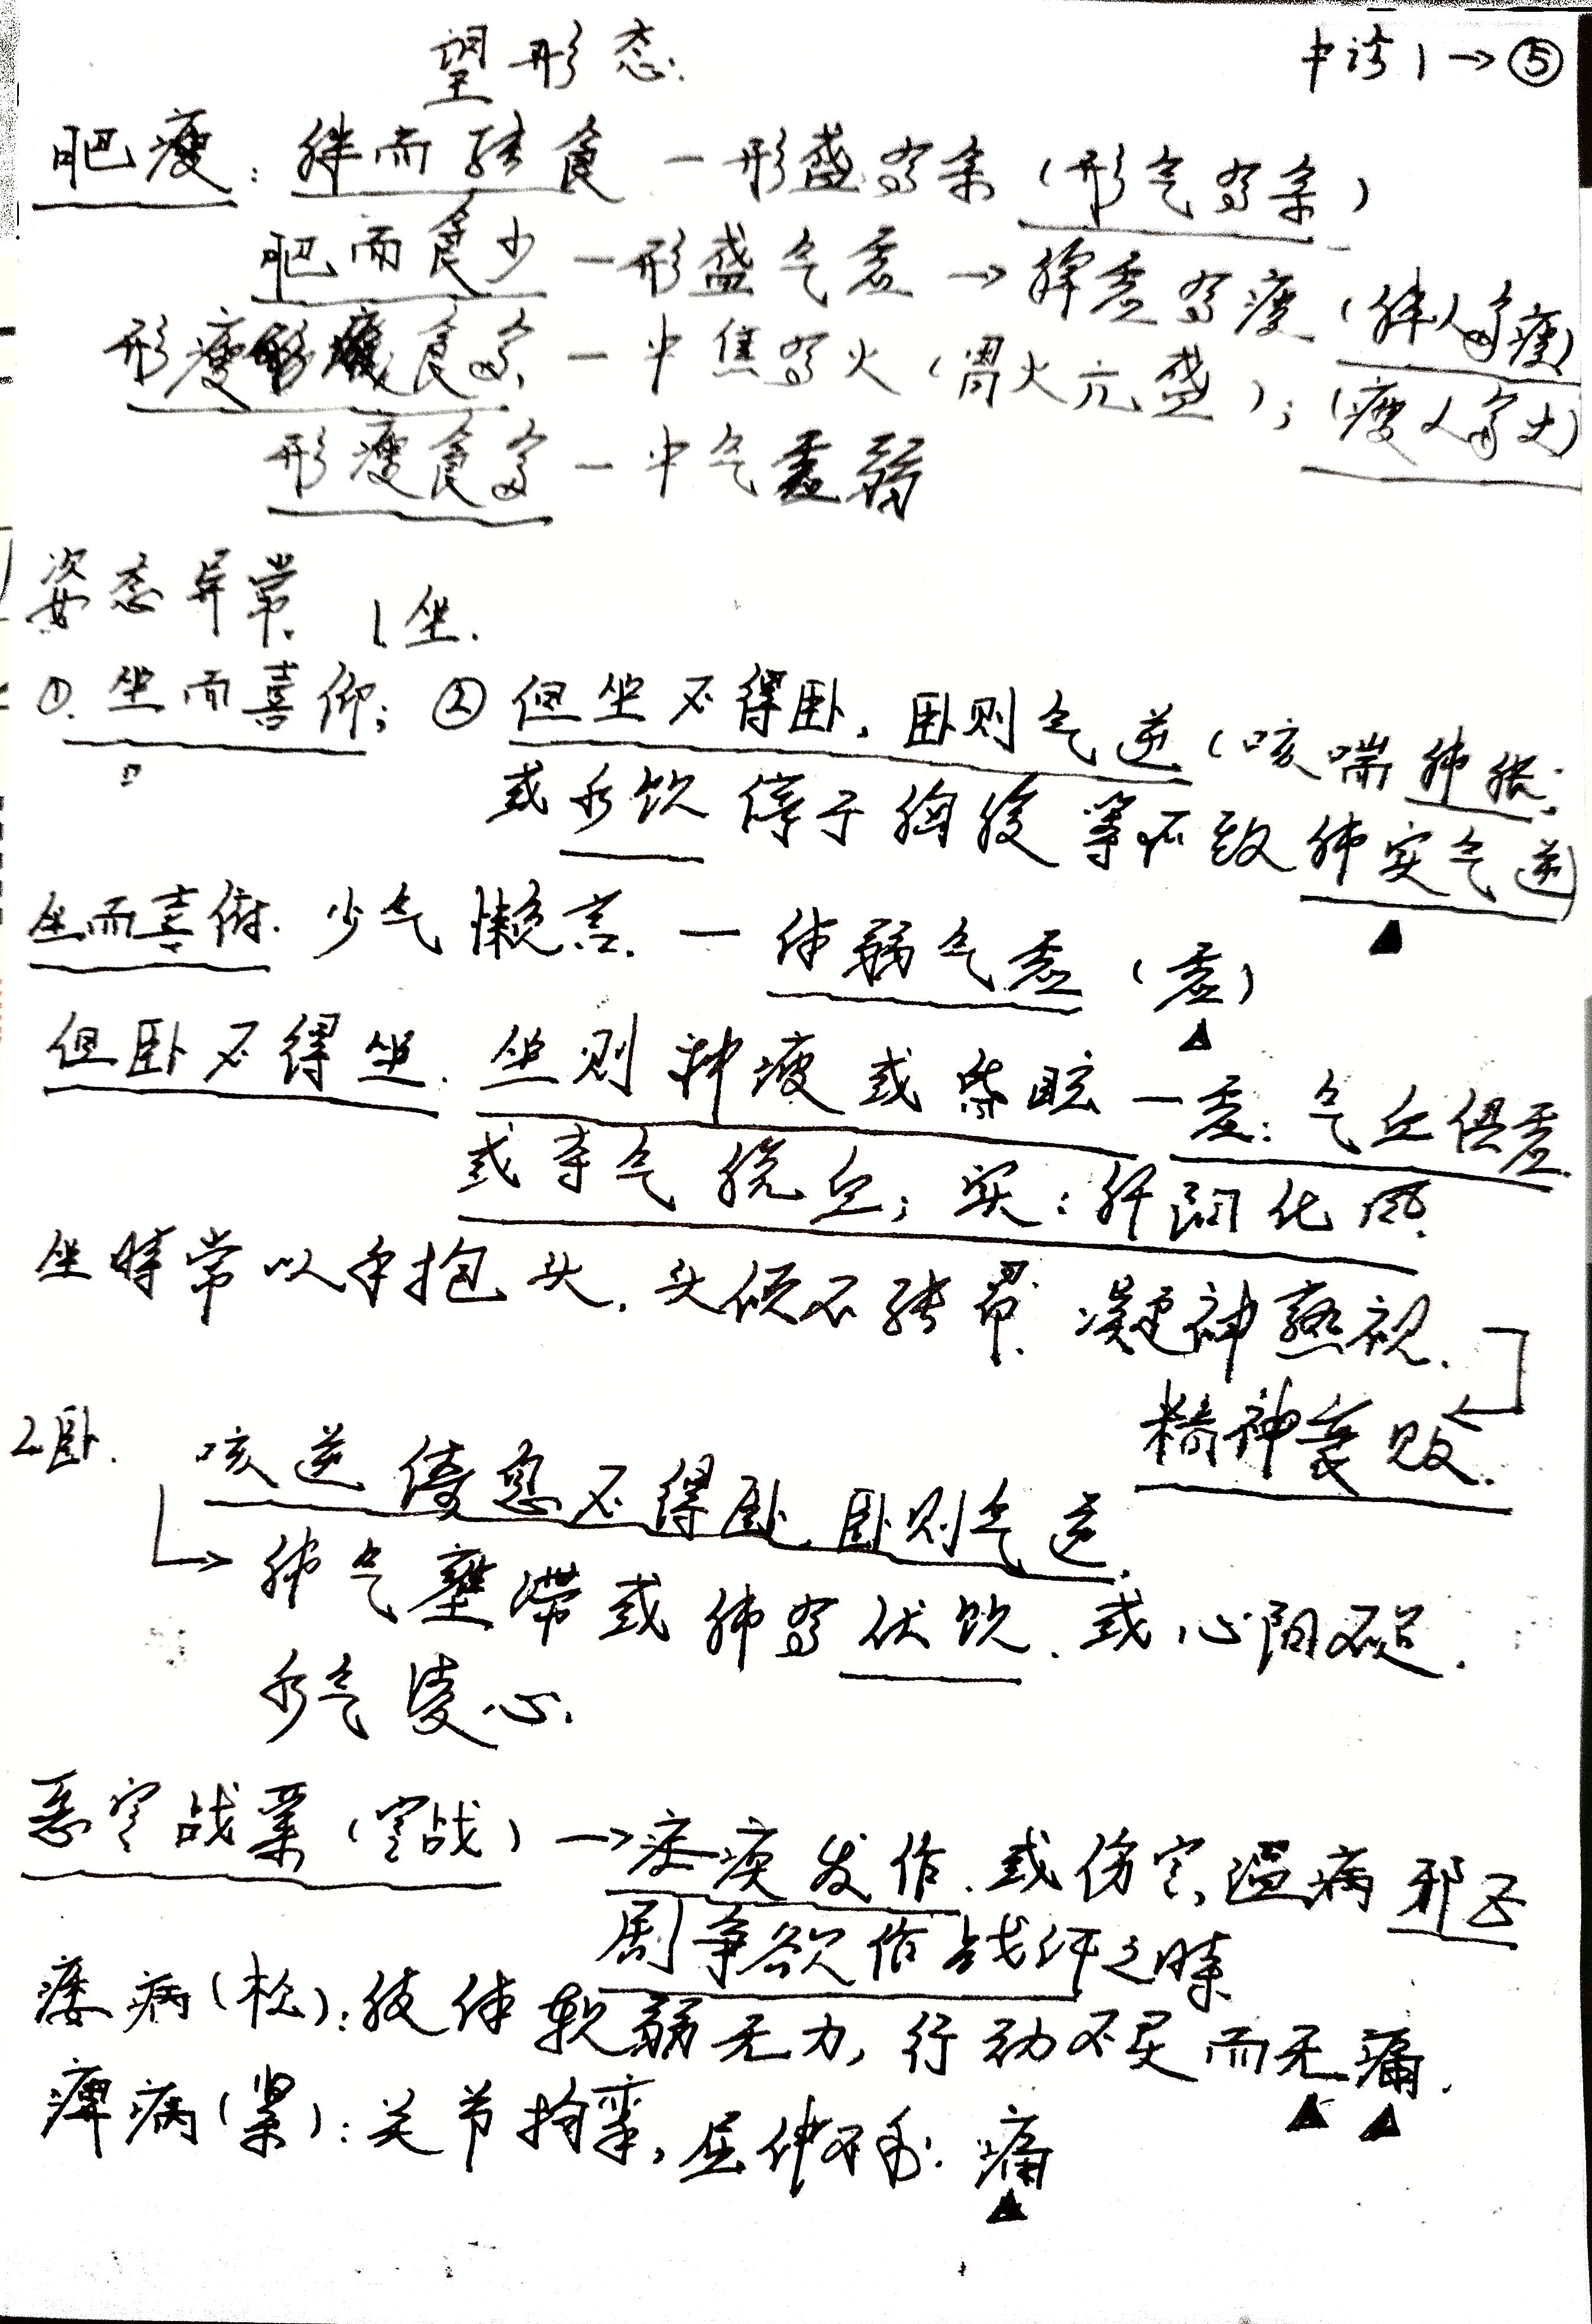 望形态.
中诊1→⑤
肥瘦：胖而能食 — 形盛有余（形气有余）
肥而食少 — 形盛气虚 → 脾虚有痰（胖人多痰）
形瘦食多 — 中焦有火（胃火亢盛）；（瘦人多火）
形瘦食多 — 中气虚弱
姿态异常. 1坐.
①. 坐而喜仰；② 但坐不得卧，卧则气逆（咳喘肺胀；
或水饮停于胸腹等不致肺实气逆）
坐而喜俯. 少气懒言. — 体弱气虚（虚）
但卧不得坐. 坐则神疲或昏眩 — 虚：气血俱虚
或夺气脱血；实：肝阳化风.
坐时常以手抱头，头倾不能昂. 凝神熟视.
精神衰败.
2卧. 咳逆倚息不得卧，卧则气逆.
→肺气壅滞或肺有伏饮. 或心阳不足.
水气凌心.
恶寒战栗（寒战）→ 疟疾发作. 或伤寒，温病邪正
剧争欲作战汗之时
痿病（松）：肢体软弱无力，行动不灵而无痛.
痹病（紧）：关节拘挛，屈伸不利：痛